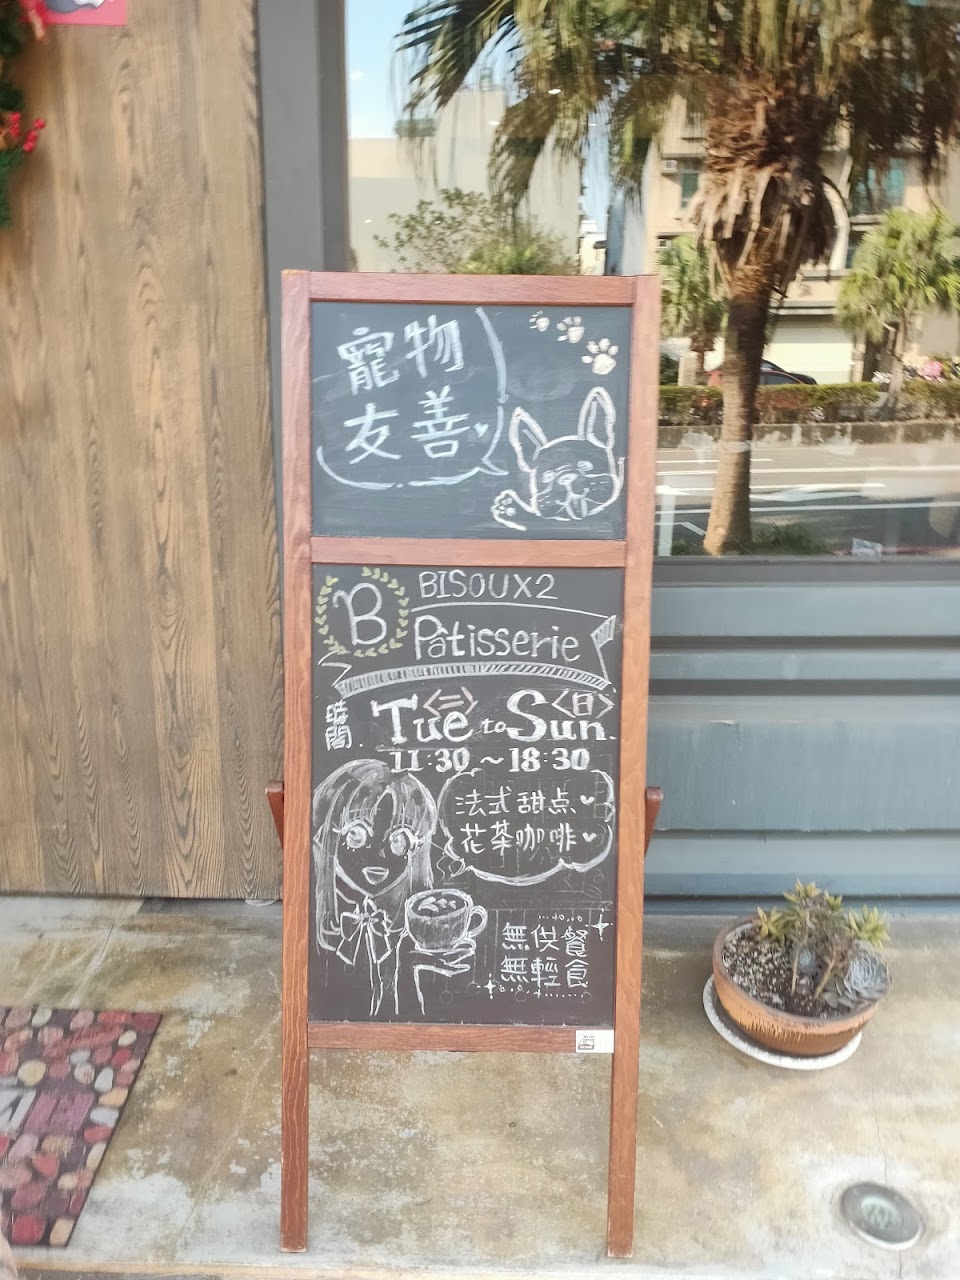 寵物
友善
B
BISOUX2
Pâtisserie
時間.
Tue<二> to Sun<日>.
11:30 ~ 18:30
法式甜点
花茶咖啡
無供餐
無輕食